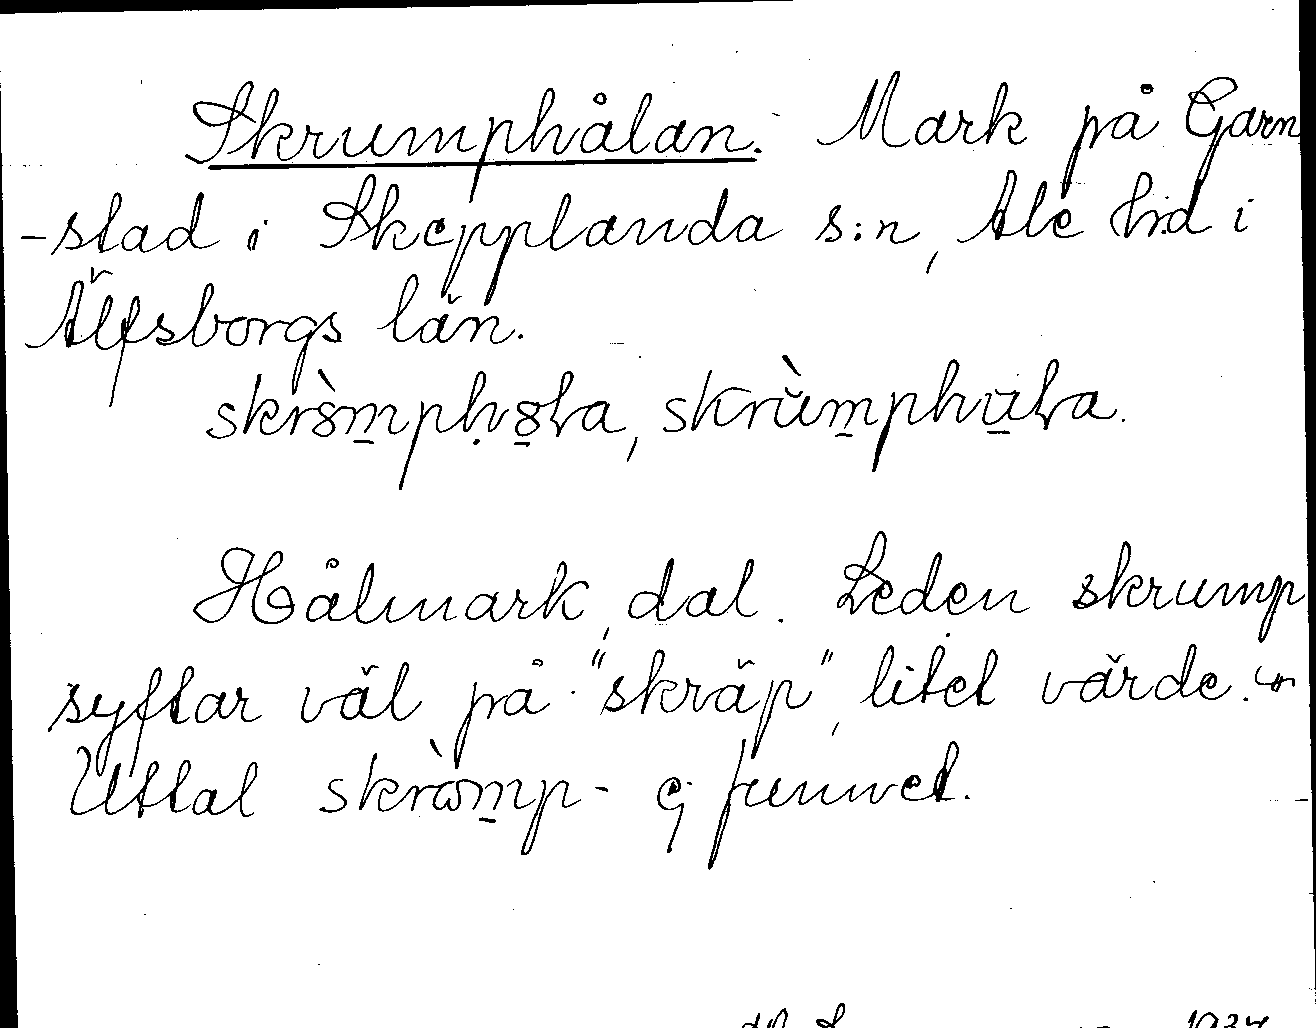 Skrumphålan. Mark på Garn
-stad i Skepplanda s:n, Ale hd i
Älfsborgs län.
Hålmark, dal. Leden skrump
syftar väl på "skräp", litet värde.
Uttal skròmp- ej funnet.